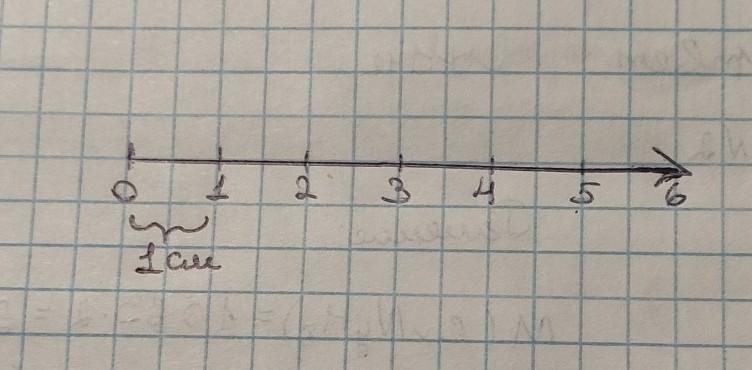 0 1 2 3 4 5 6
1 см